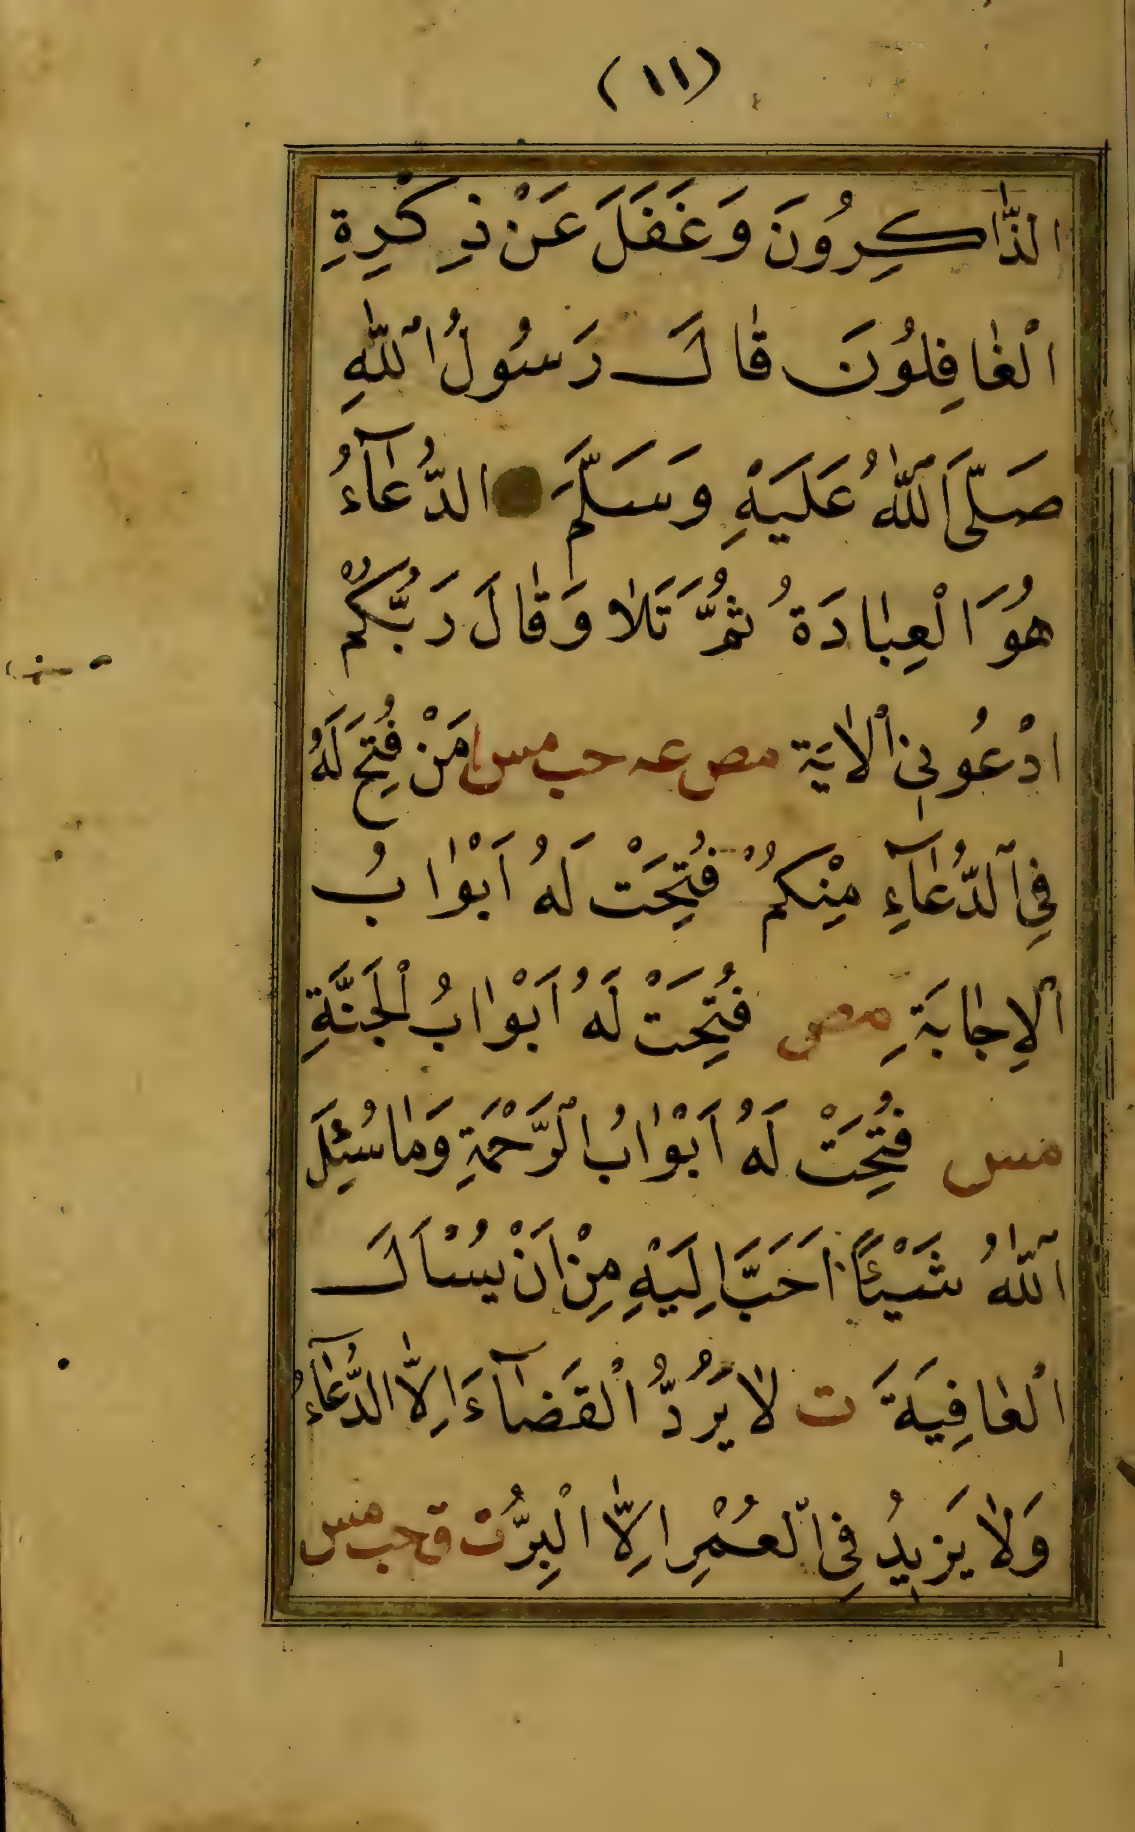 (١١)
الذَّاكِرُونَ وَغَفَلَ عَنْ ذِكْرِهِ
الْغَافِلُونَ قَالَ رَسُولُ اللّٰهِ
صَلَّى اللّٰهُ عَلَيْهِ وَسَلَّمَ الدُّعَآءُ
هُوَ الْعِبَادَةُ ثُمَّ تَلَا وَقَالَ رَبُّكُمُ
ادْعُونِي الْاٰيَة مص عه حب مس ا مَنْ فُتِحَ لَهُ
فِي الدُّعَآءِ مِنْكُمْ فُتِحَتْ لَهُ اَبْوَابُ
الْاِجَابَةِ مص فُتِحَتْ لَهُ اَبْوَابُ الْجَنَّةِ
مس فُتِحَتْ لَهُ اَبْوَابُ الرَّحْمَةِ وَمَا سُئِلَ
اللّٰهُ شَيْئًا اَحَبَّ اِلَيْهِ مِنْ اَنْ يُسْاَلَ
الْعَافِيَةَ ت لَا يَرُدُّ الْقَضَآءَ اِلَّا الدُّعَآءُ
وَلَا يَزِيدُ فِي الْعُمْرِ اِلَّا الْبِرُّ ت ق حب مس